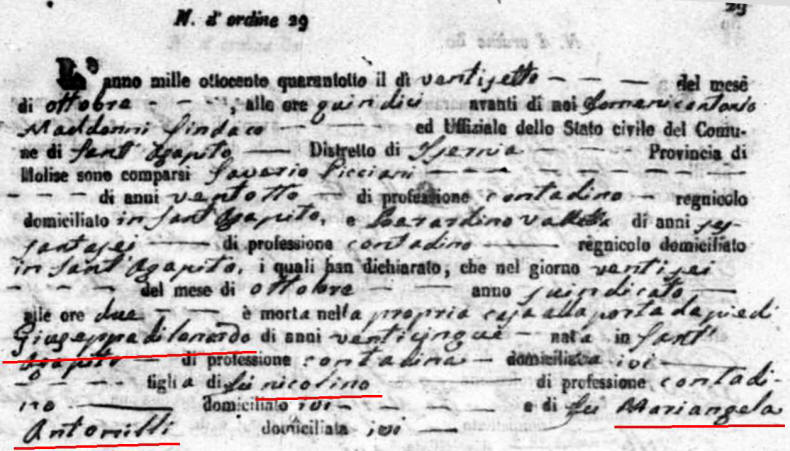 N. d' ordine 29
29
L' anno mille ottocento quarantotto il dì ventisette - - - del mese
di ottobre - - - , alle ore quindici avanti di noi Domenicantonio
Maddonni Sindaco - - ed Uffiziale dello Stato civile del Comu-
ne di Sant' Agapito — Distretto di Isernia — Provincia di
Molise sono comparsi Saverio Picciani — — — —
- - - di anni ventotto - di professione contadino - regnicolo
domiciliato in Sant' Agapito, e Berardino di anni ses-
santasei — di professione contadino — regnicolo domiciliato
in Sant' Agapito, i quali han dichiarato, che nel giorno ventisei
- - - - del mese di ottobre - - - anno suindicato —
alle ore due - - - è morta nella propria casa alla porta da piedi
Giuseppa di Lonardo di anni venticinque - nata in Sant'
Agapito - di professione contadina - domiciliata ivi —
- - - - figlia di fu nicolino — di professione contadi-
no — domiciliato ivi - - - - e di fu Mariangela
Antonilli domiciliata ivi —